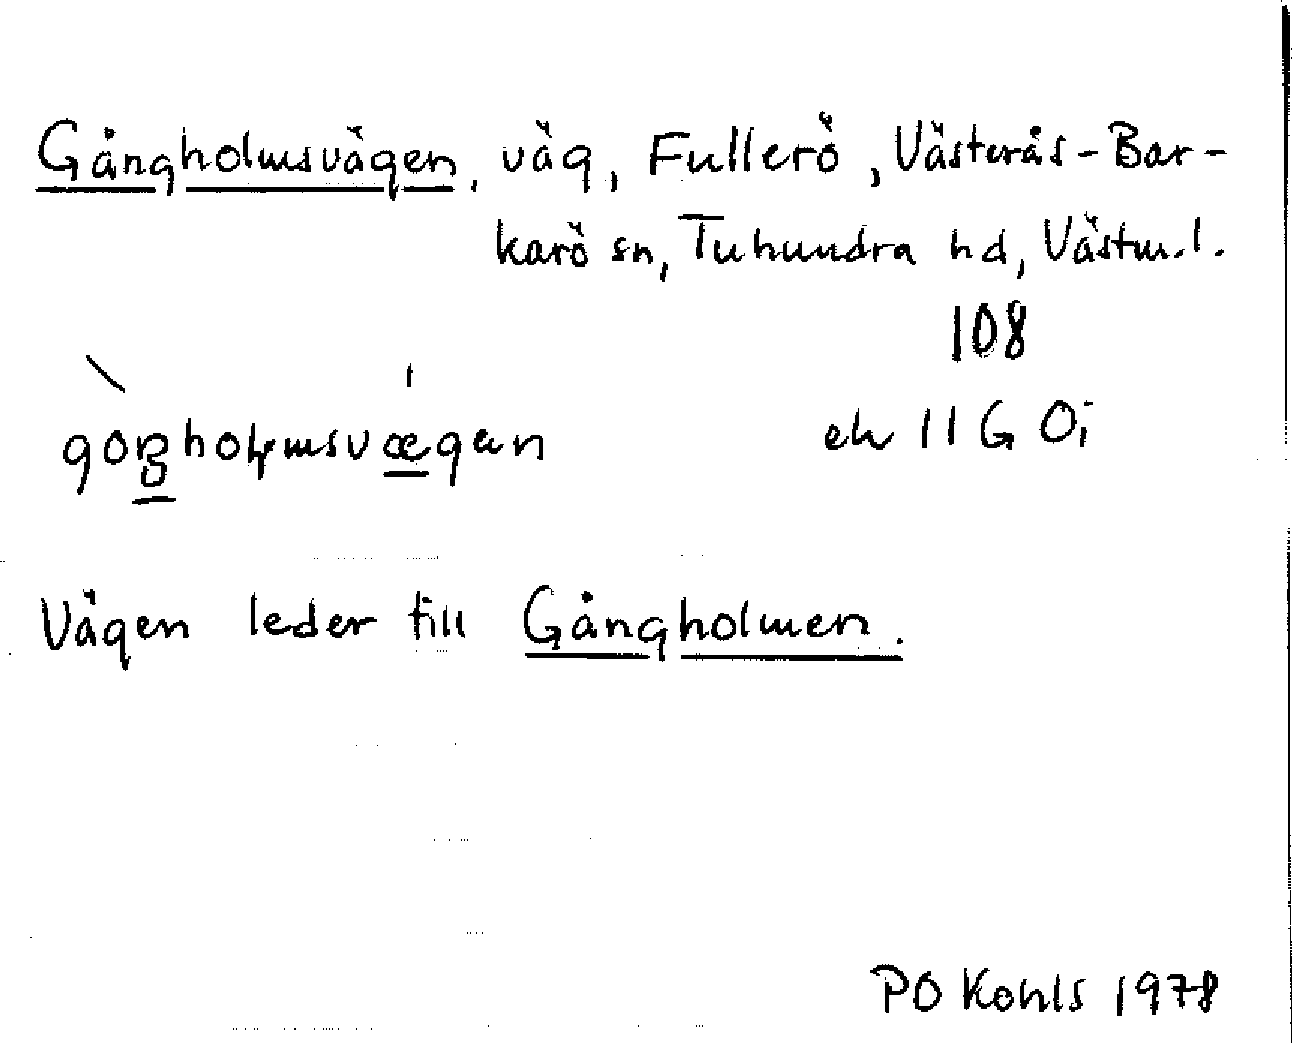 Gångholmsvägen, väg, Fullerö, Västerås-Bar-
karö sn, Tuhundra hd, Västm.l.
108
ek 11 G 0i
Vägen leder till Gångholmen.
PO Kohls 1978